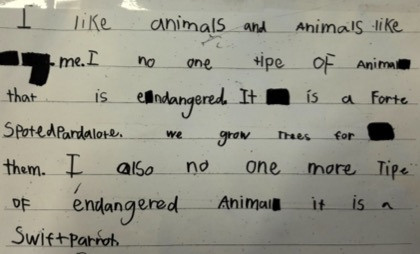 I like animals and Animals like
me. I no one tipe OF Animal
that is endangered. It is a Forte
SpotedPardalote. we grow Trees for
them. I also no one more Tipe
OF endangered Animal it is a
Swiftparrot.